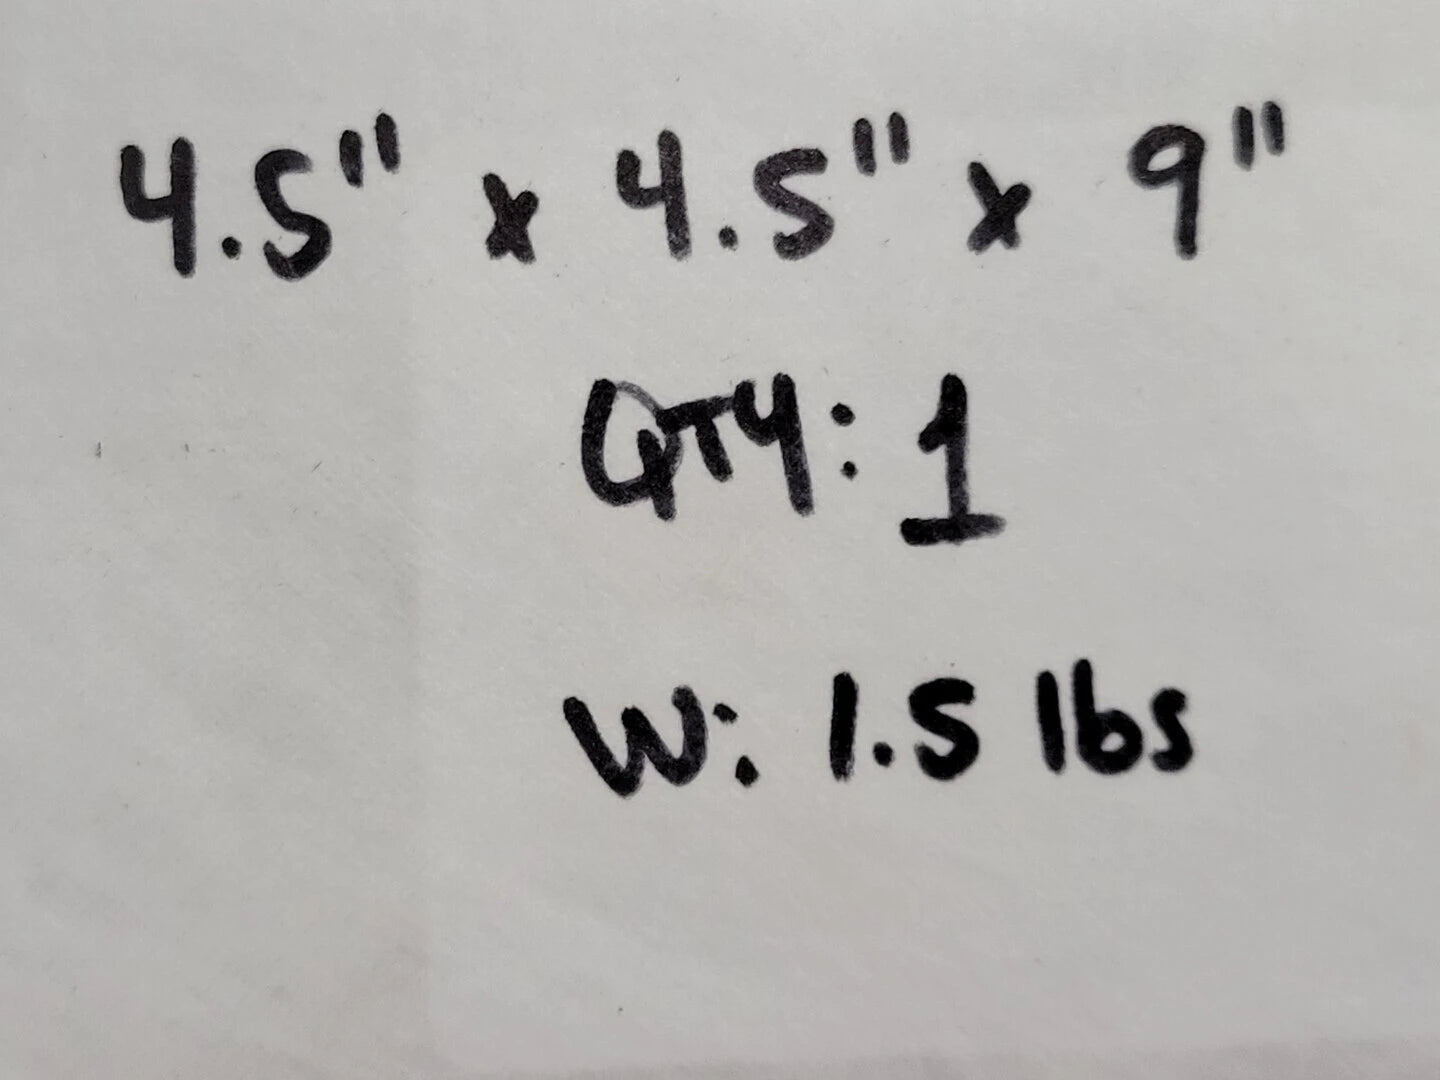 4.5" x 4.5" x 9"
QTY: 1
W: 1.5 lbs